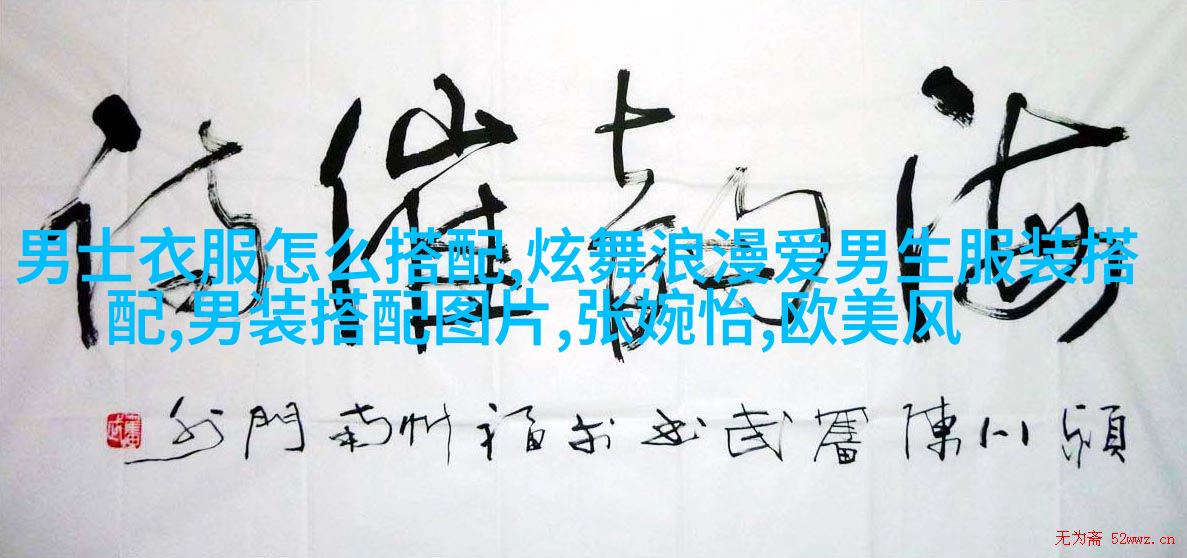 海韵催诗
男士衣服怎么搭配,炫舞浪漫爱男生服装搭
配,男装搭配图片,张婉怡,欧美风
潁川陳奮武書於福州南門外
无为斋 52wwz.cn